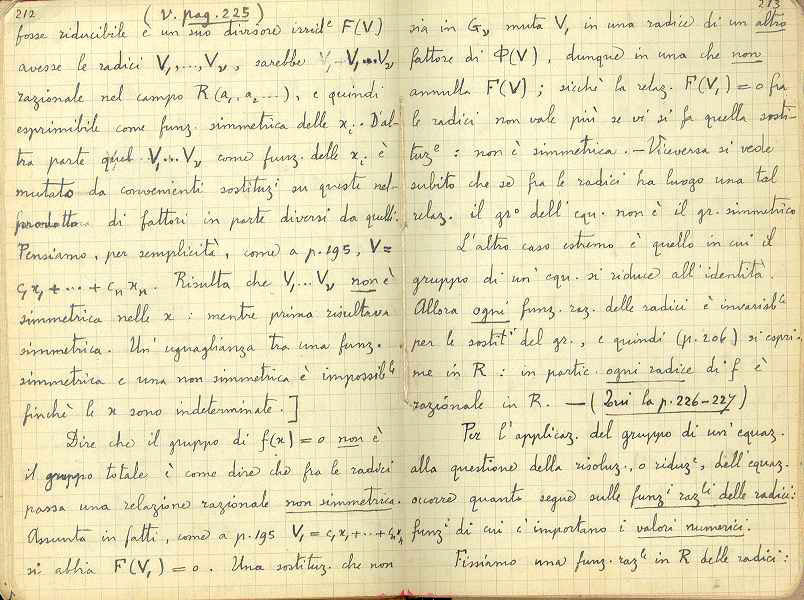 212
( v. pag. 225 )
fosse riducibile e un suo divisore irridᵉ F(V)
avesse le radici V₁,...,Vᵥ, sarebbe V₁ V₂...Vᵥ
razionale nel campo R(a₁ a₂ ....), e quindi
esprimibile come funz. simmetrica delle xᵢ. D'al-
tra parte quel V₁...Vᵥ come funz. delle xᵢ è
mutato da convenienti sostituzⁱ su queste nel
prodotto di fattori in parte diversi da quelli.
Pensiamo, per semplicità, come a p. 195, V=
c₁x₁ + ... + cₙxₙ. Risulta che V₁...Vᵥ non è
simmetrica nelle x : mentre prima risultava
simmetrica. Un'uguaglianza tra una funz.
simmetrica e una non simmetrica è impossibˡᵉ
finchè le x sono indeterminate. ]
Dire che il gruppo di f(x)=0 non è
il gruppo totale è come dire che fra le radici
passa una relazione razionale non simmetrica.
Assunta in fatti, come a p. 195 V₁ = c₁x₁ + ... + cₙxₙ
si abbia F(V₁) = 0. Una sostituz. che non
213
sia in Gᵥ muta V₁ in una radice di un altro
fattore di Φ(V), dunque in una che non
annulla F(V) ; sicchè la relaz. F(V₁) = 0 fra
le radici non vale più se vi si fa quella sosti-
tuzᵉ : non è simmetrica. — Viceversa si vede
subito che se fra le radici ha luogo una tal
relaz. il grº dell'equ. non è il gr. simmetrico
L'altro caso estremo è quello in cui il
gruppo di un'equ. si riduce all'identità.
Allora ogni funz. raz. delle radici è invariabˡᵉ
per le sostitⁱ del gr., e quindi (p. 206) si espri-
me in R : in partic. ogni radice di f è
razionale in R. — ( Qui la p. 226-227 )
Per l'applicaz. del gruppo di un'equaz.
alla questione della risoluz., o riduzᵉ, dell'equaz.
occorre quanto segue sulle funzⁱ razˡⁱ delle radici:
funzⁱ di cui c'importano i valori numerici.
Fissiamo una funz. razˡᵉ in R delle radici :